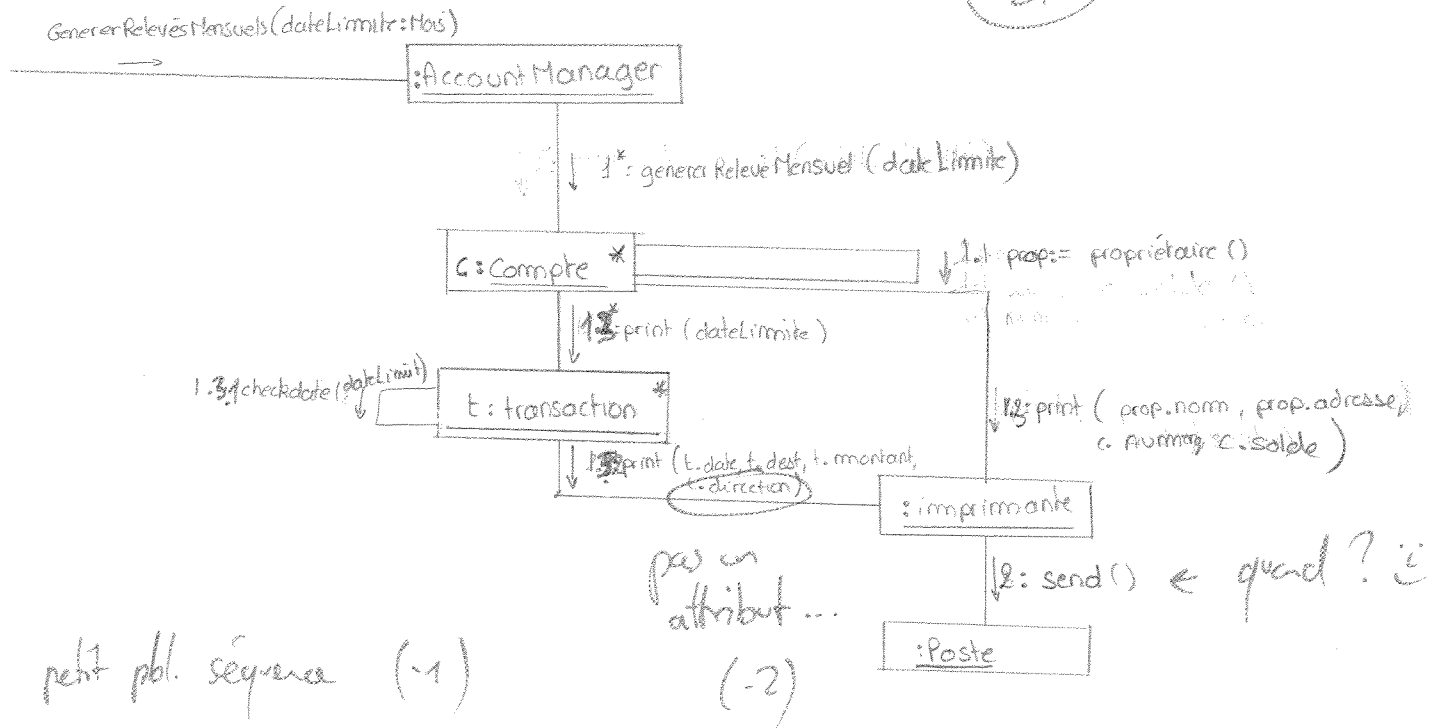 GenererRelevésMensuels(dateLimite:Mois)
:AccountManager
1*: genererReleveMensuel (dateLimite)
c:Compte *
1.1 prop:= propriétaire ()
print (dateLimite)
checkdate(dateLimit)
t: transaction *
print ( prop.nom, prop.adresse,
c.solde )
print (t.date, t.dest, t.montant,
t.direction)
:imprimante
pas un
attribut ...
2: send() ← quand ?
:Poste
petit pbl. séquence (-1)
(-2)